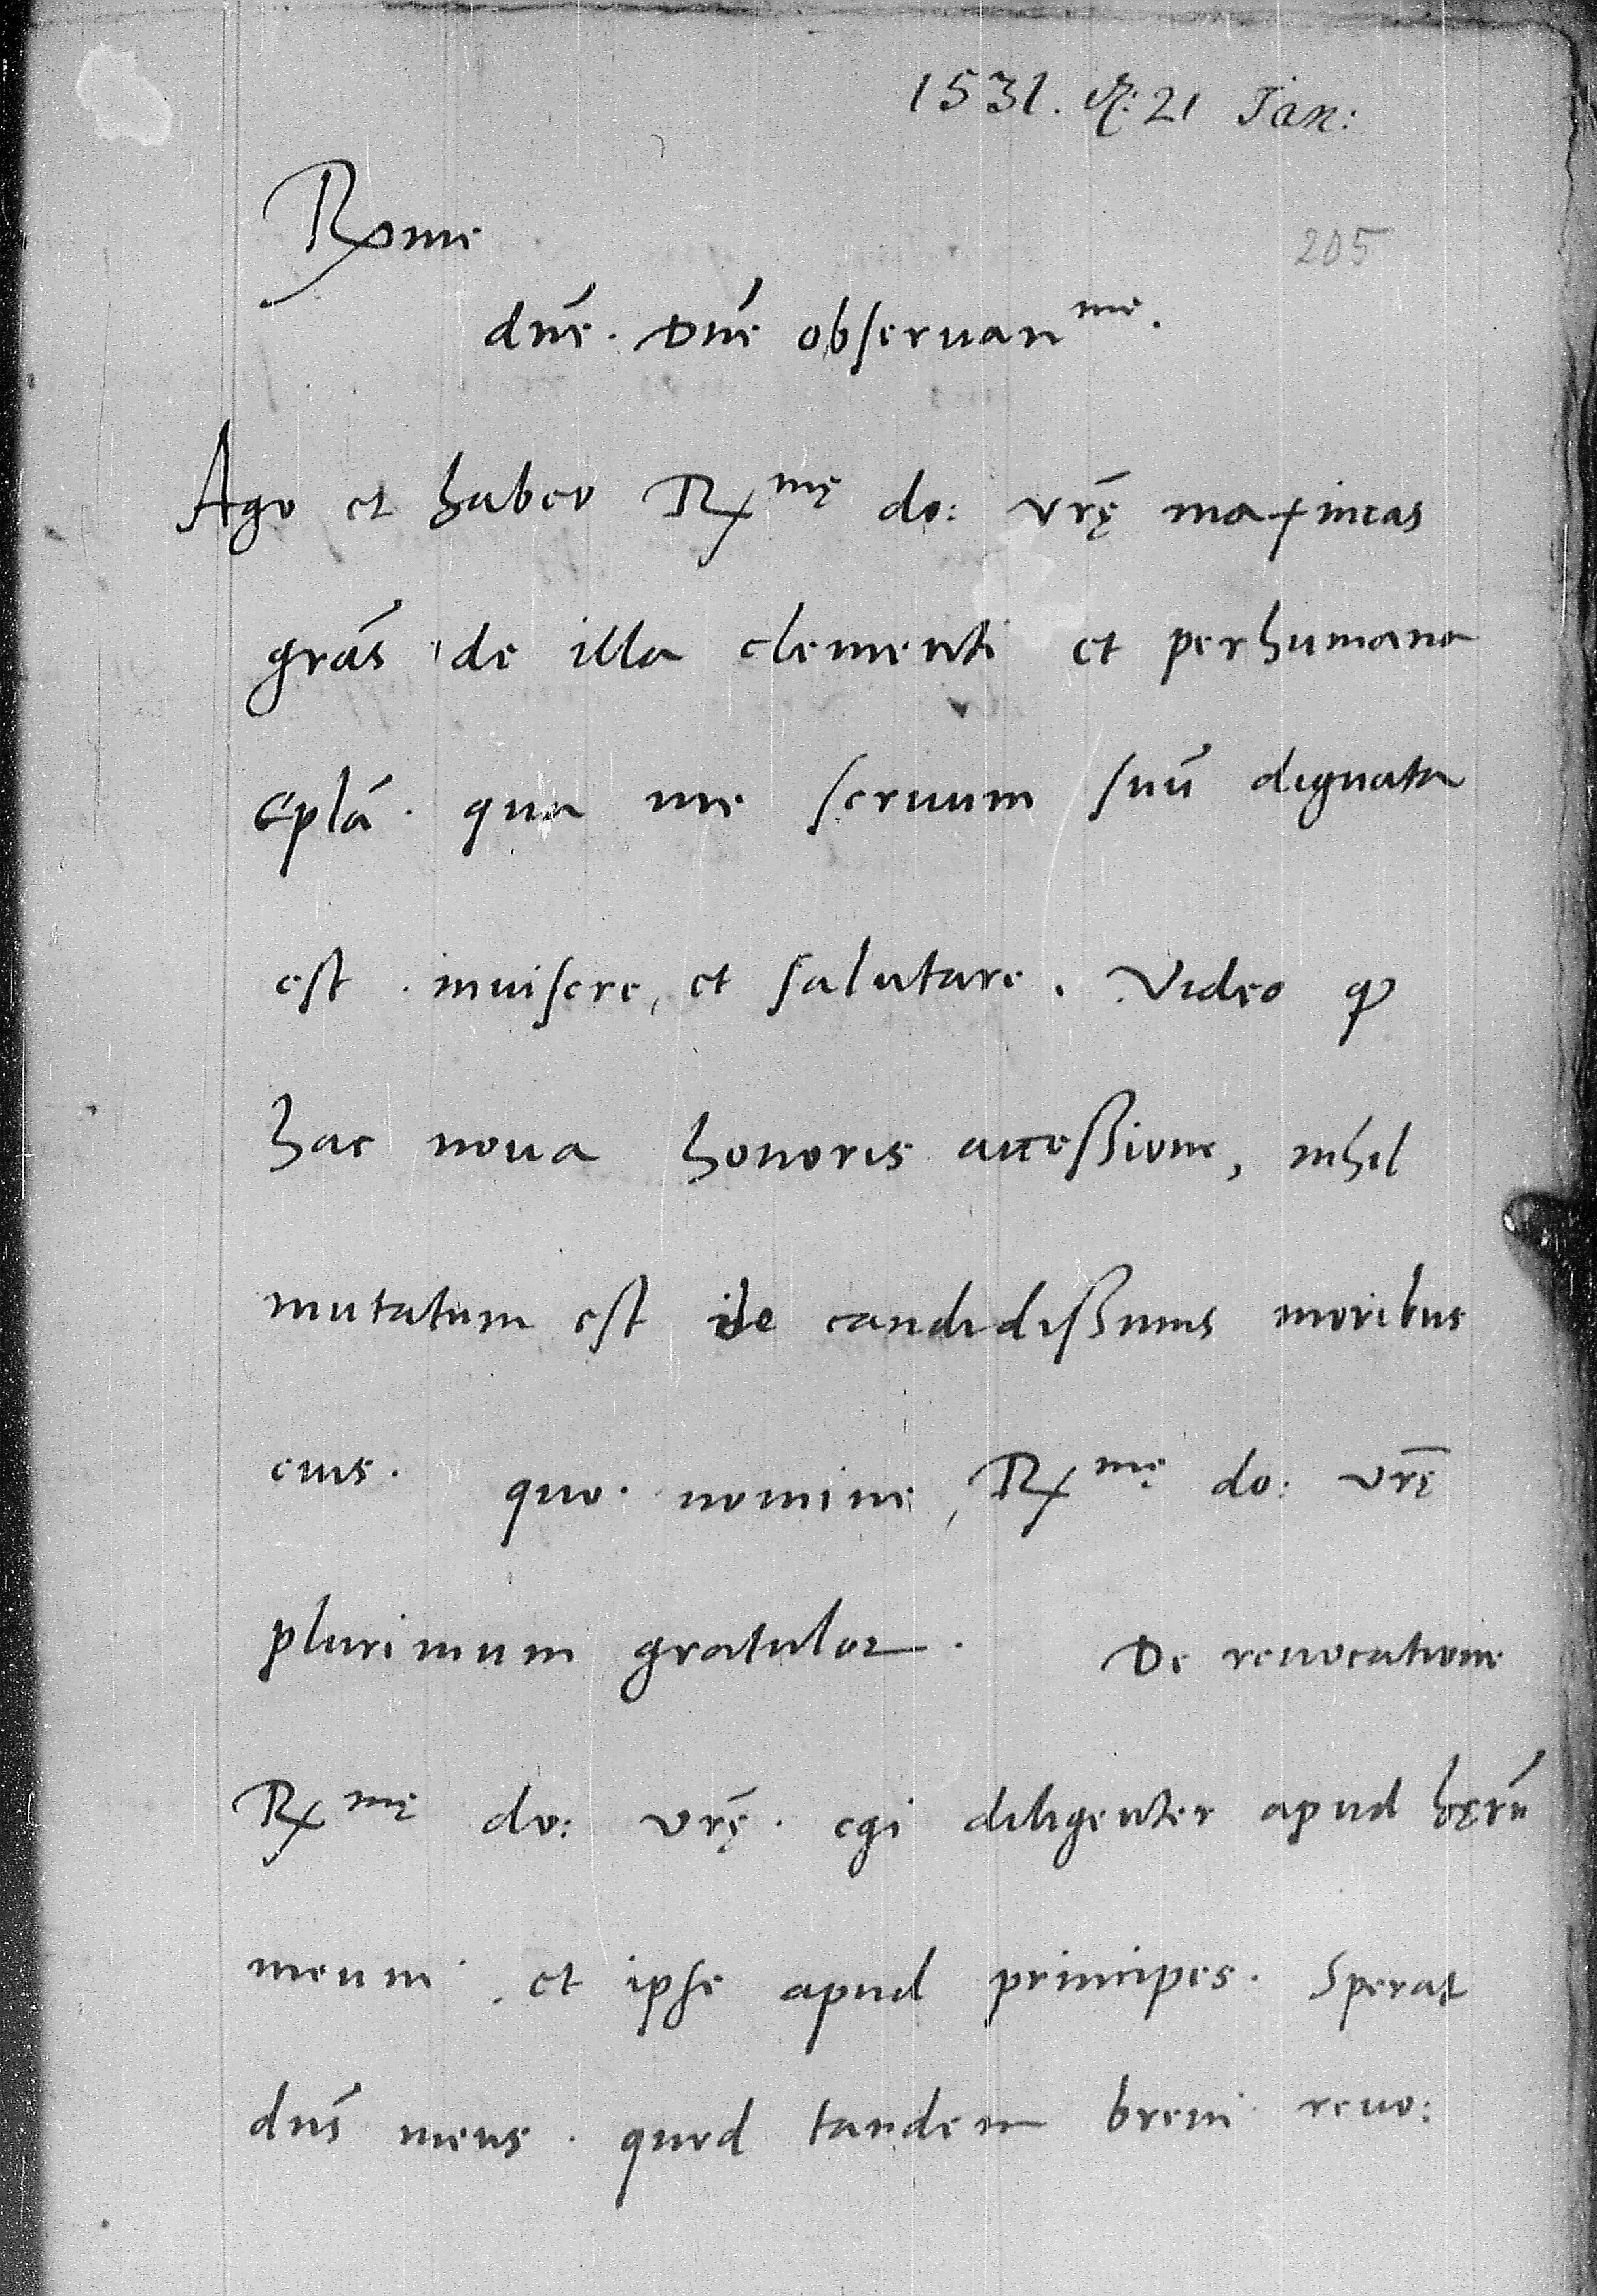 1531. d. 21 Jan:
Rome
205
dne. Dne observanme.
Ago et habeo Rme do: vrę maximas
gras de illa clementi et perhumana
epla. qua me servum suu dignata
est. invisere, et salutare. Video q
hac nova honoris accessione, nihil
mutatum est de candidissimis moribus
eius. quo. nomine, Rmę do: vrę
plurimum gratulor. De revocatione
Rmę do: vrę. egi diligenter apud hęru
meum. et ipse apud principes. Sperat
dns meus. quod tandem brevi revo: